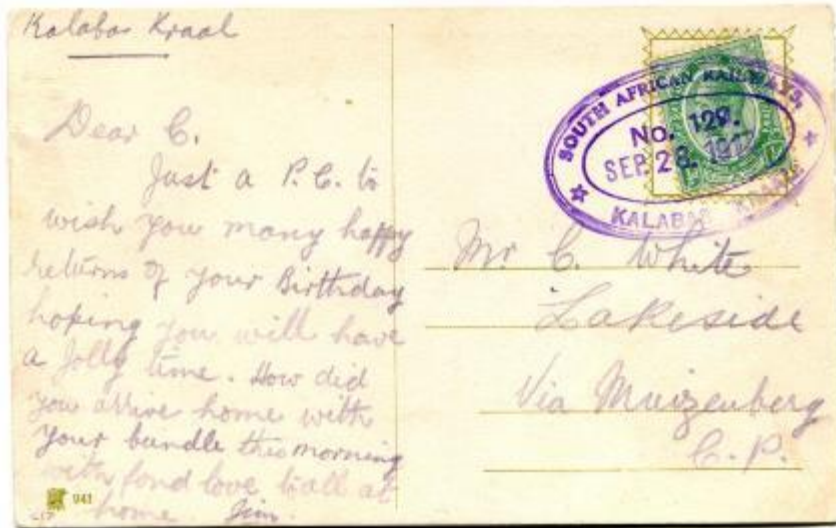 Kalabas Kraal
Dear C.
Just a P.C. to
wish you many happy
returns of your Birthday
hoping you will have
a jolly time. How did
you arrive home with
your bundle this morning
with fond love to all at
home. Jim.
941
SOUTH AFRICAN RAILWAYS.
No. 129.
SEP. 28. 191
KALABAS KRAAL
Mr C. White
Lakeside
Via Muizenberg
C.P.